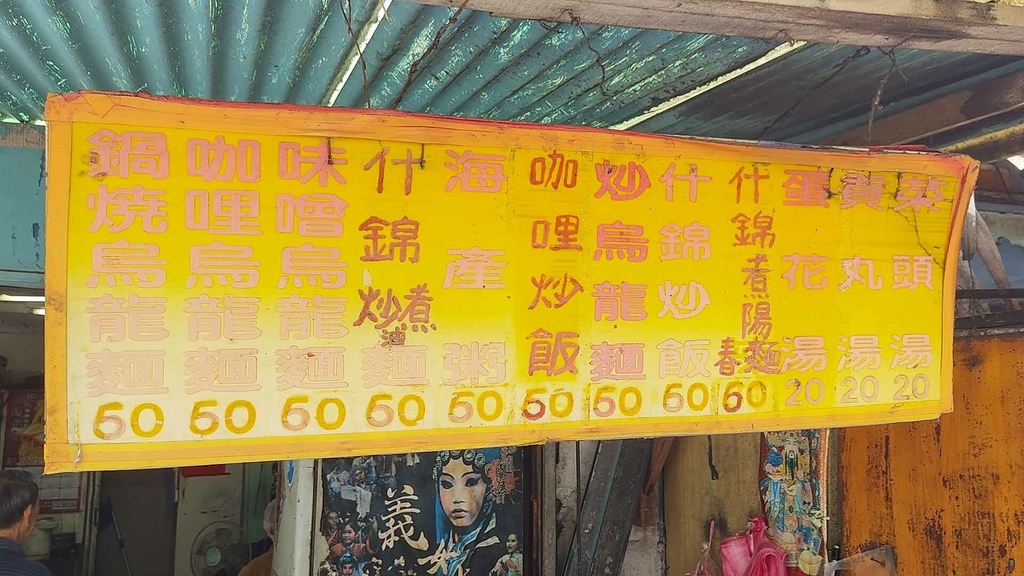 鍋燒烏龍麵 50
咖哩烏龍麵 50
味噌烏龍麵 50
什錦炒煮油麵 50
海產粥 50
咖哩炒飯 50
炒烏龍麵 50
什錦炒飯 50
什錦煮陽春麵 50
蛋花湯 20
貢丸湯 20
菜頭湯 20
義